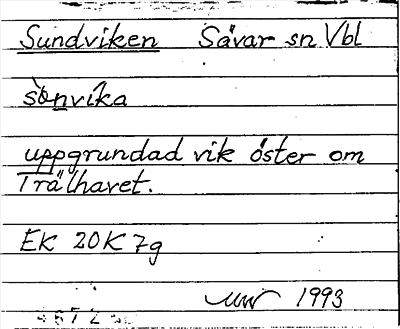 Sundviken Sävar sn Vbl
uppgrundad vik öster om
Trälhavet.
EK 20K 7g
1993